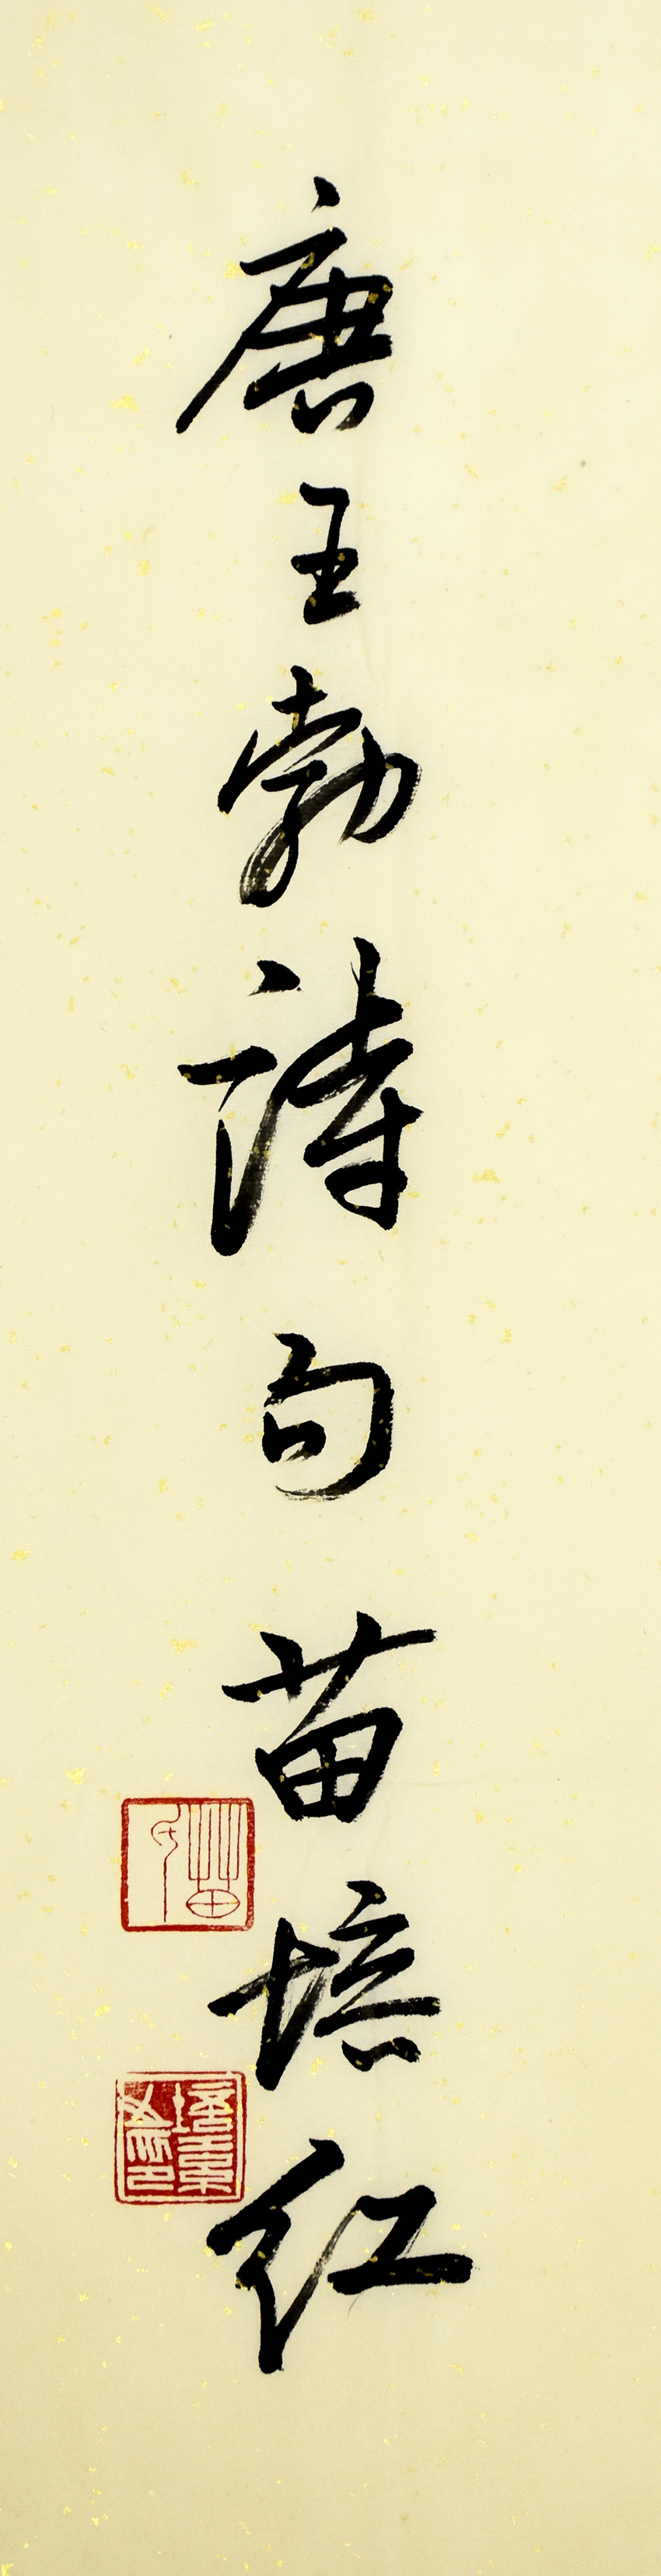 唐王勃詩句苗培红
苗氏